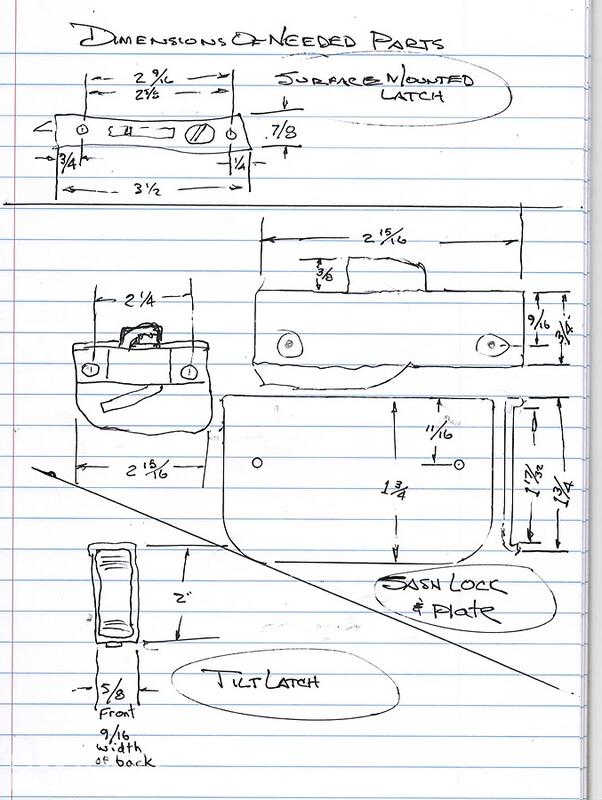 DIMENSIONS OF NEEDED PARTS
2 9/16
2 5/8
SURFACE MOUNTED
LATCH
7/8
3/4
1/4
3 1/2
2 15/16
3/8
2 1/4
9/16
3/4
11/16
2 15/16
1 3/4
1 17/32
1 3/4
SASH LOCK
& Plate
2"
TILT LATCH
5/8
Front
9/16
width
of back